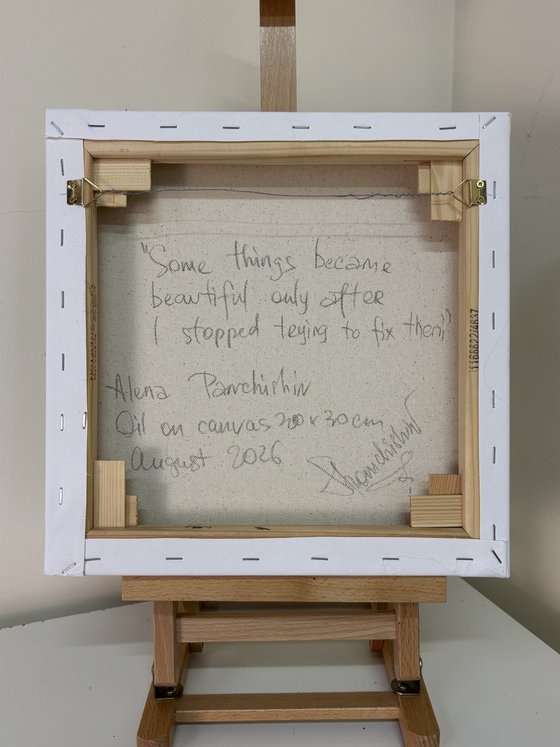 "Some things became
beautiful only after
I stopped trying to fix them"
Alena Panchishin
Oil on canvas 30x30cm
August 2026
1168622/4837